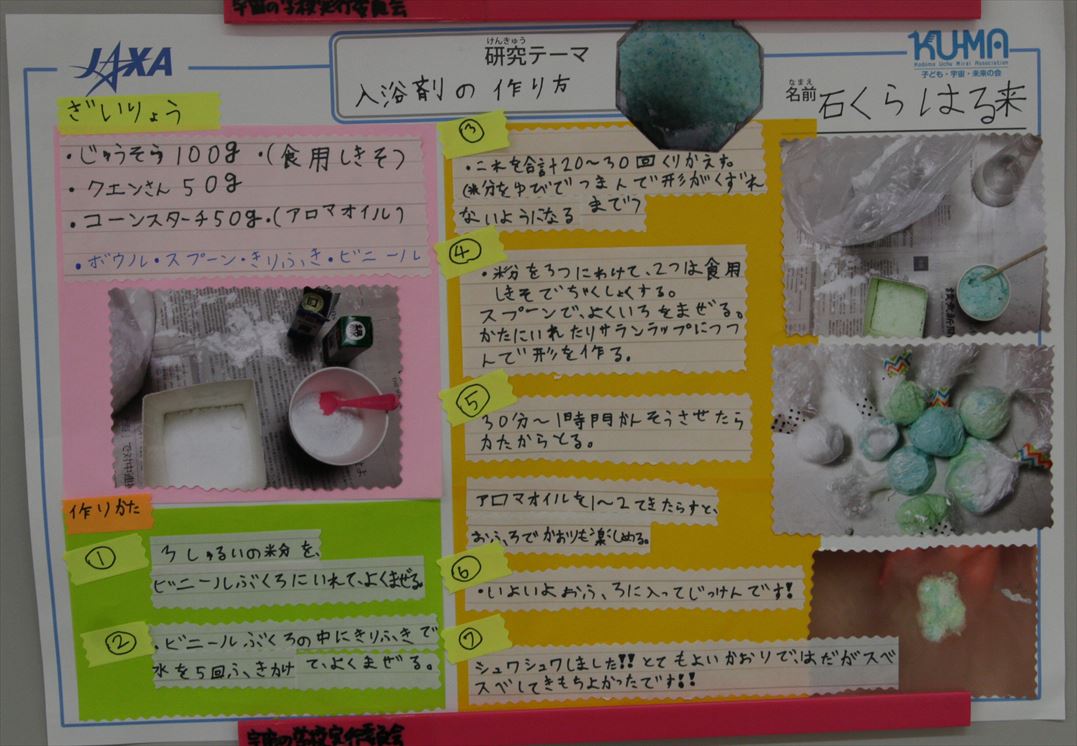 宇宙の学校実行委員会
JAXA
けんきゅう
研究テーマ
入浴剤の作り方
KU-MA
Kodomo Uchu Mirai Association
子ども・宇宙・未来の会
なまえ
名前 石くらはる来
ざいりょう
・じゅうそう100g ・(食用しきそ)
・クエンさん50g
・コーンスターチ50g・(アロマオイル)
・ボウル・スプーン・きりふき・ビニール
作りかた
① 3しゅるいの粉を、
ビニールぶくろにいれて、よくまぜる。
② ・ビニールぶくろの中にきりふきで
水を5回ふきかけて、よくまぜる。
③
・これを合計20〜30回くりかえす。
(粉をゆびでつまんで形がくずれ
ないようになるまで)
④
・粉を3つにわけて、2つは食用
しきそでちゃくしょくする。
スプーンで、よくいろをまぜる。
かたにいれたりサランラップにつつ
んで形を作る。
⑤
30分〜1時間かんそうさせたら
かたからとる。
アロマオイルを1〜2てきたらすと、
おふろでかおりも楽しめる。
⑥
・いよいよおふろに入ってじっけんです!
⑦
シュワシュワしました!!とてもよいかおりで、はだがスベ
スベしてきもちよかったです!!
宇宙の学校実行委員会